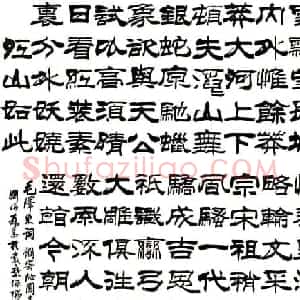 内惟餘莽
莽大河上下
頓失滔滔山舞
銀蛇原馳蠟
象欲與天公
試比高須晴
日看紅裝素
裹分外妖嬈
江山如此
略輸文
宗宋祖稍
風騷一代
驕成吉思
祇識彎弓
大雕俱往
數風流人
還看今朝
毛澤東詞
Shufaziliao.com